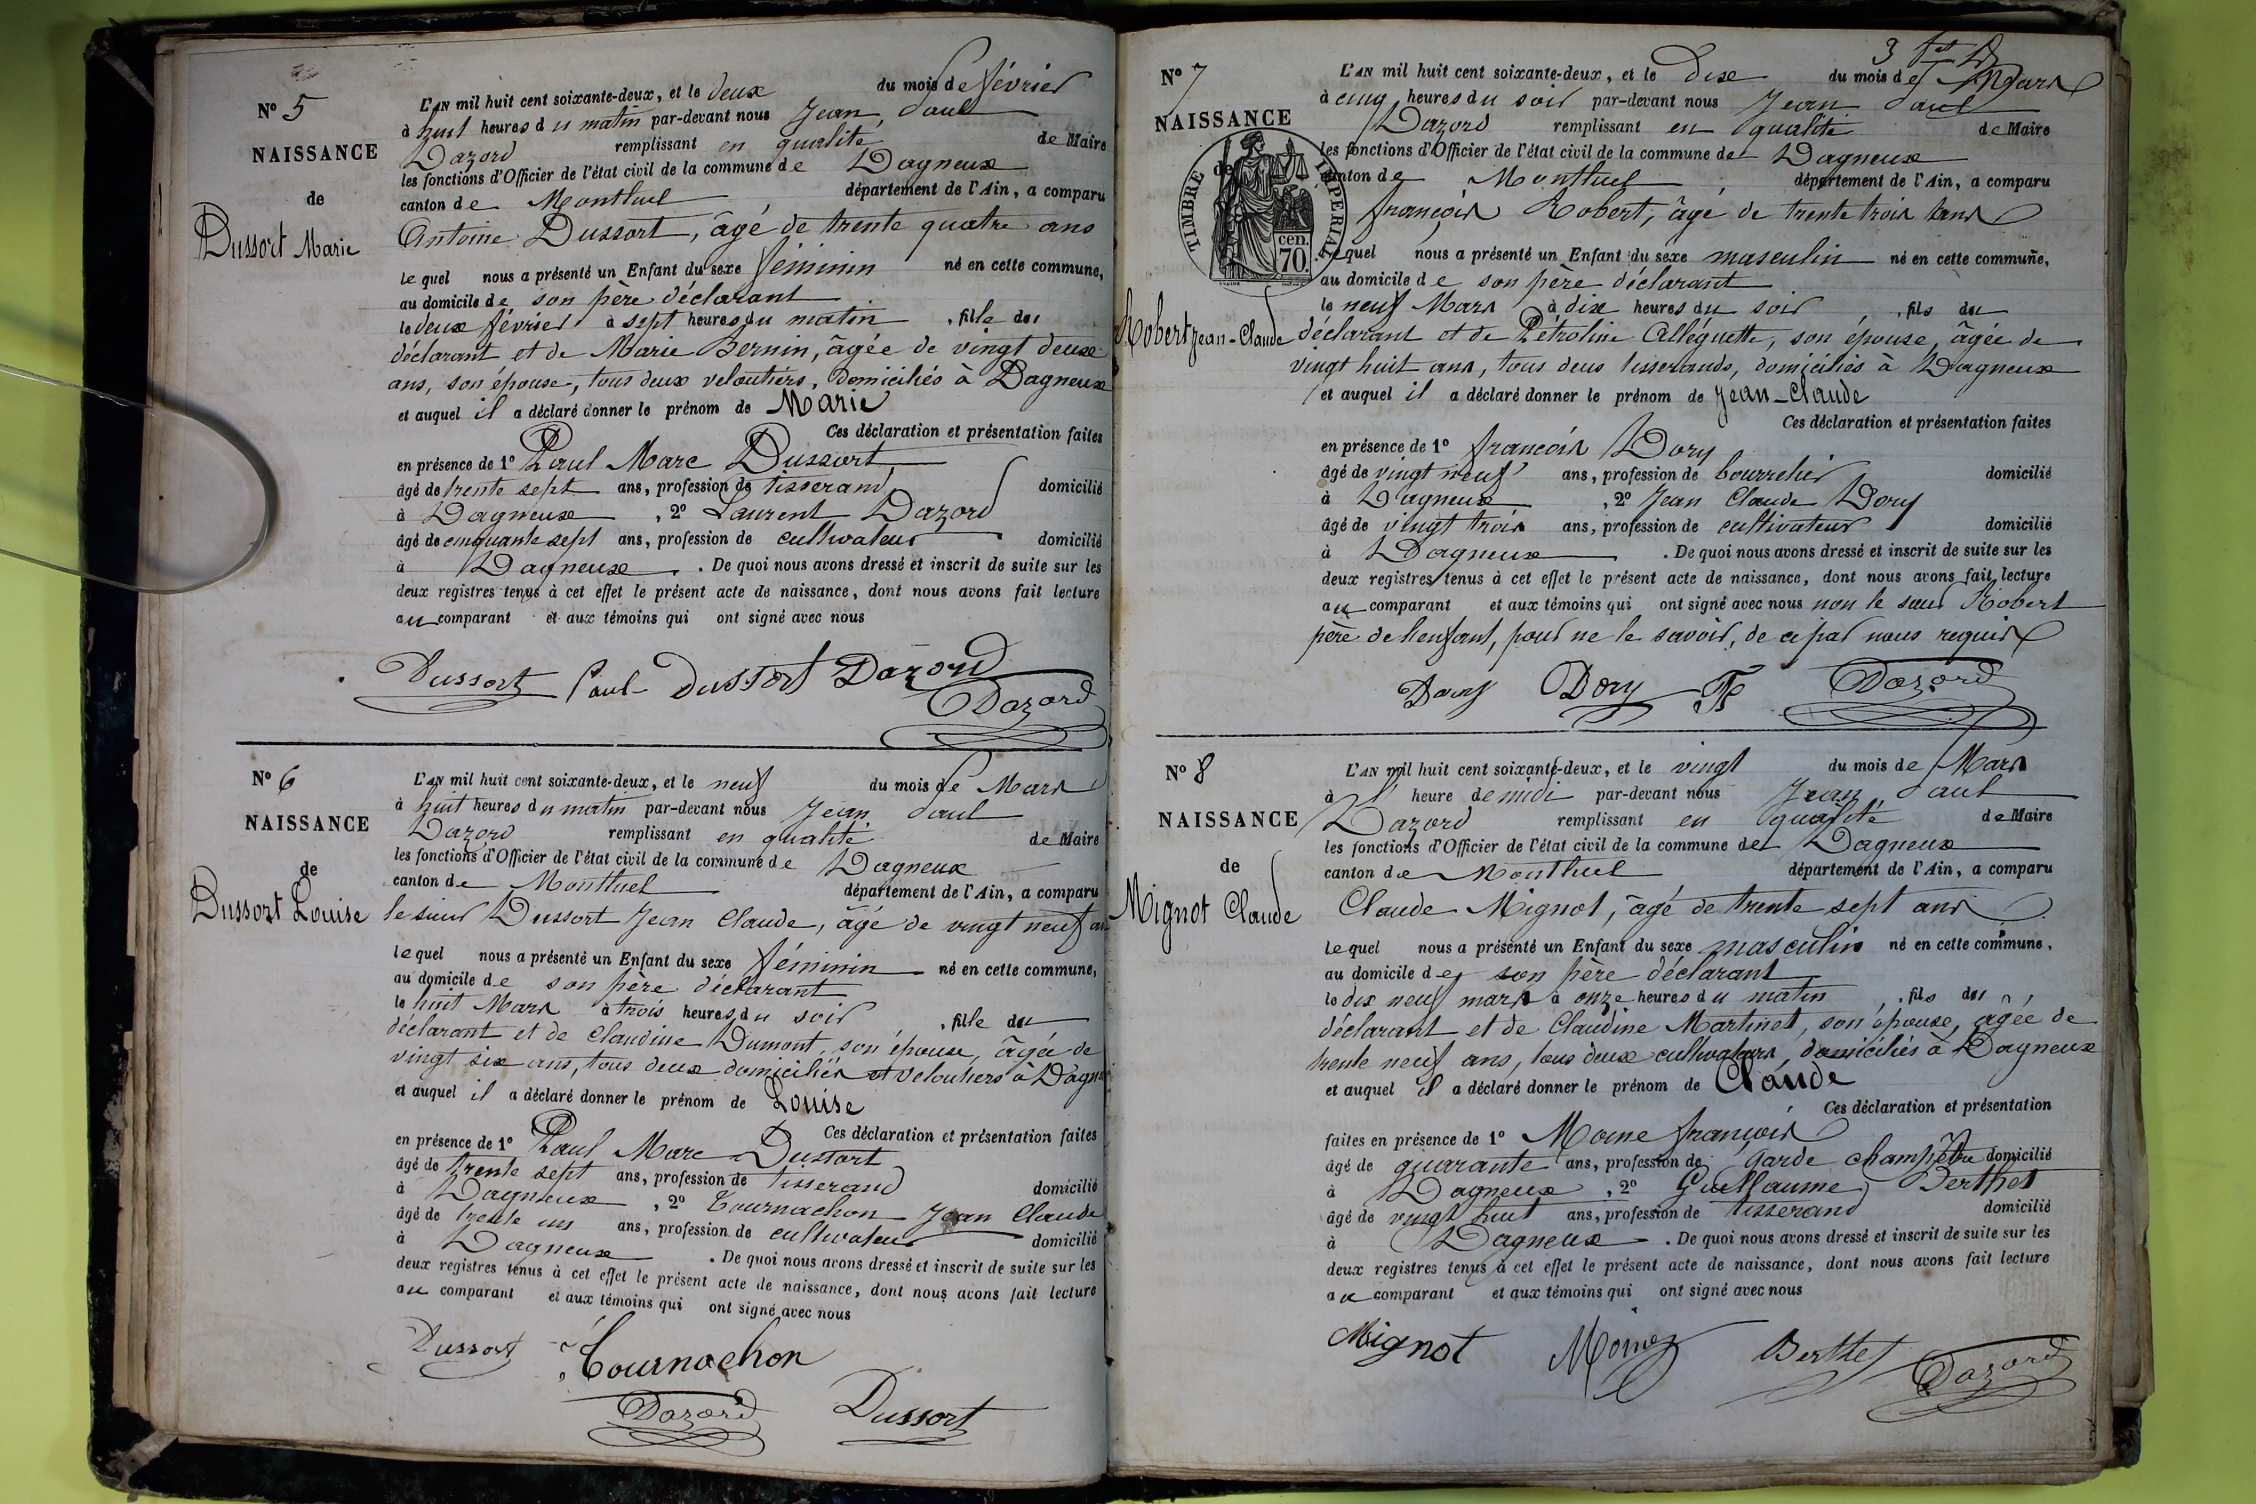 N° 5
NAISSANCE
de
Dussort Marie
L'AN mil huit cent soixante-deux, et le deux du mois de février
à huit heures du matin par-devant nous Jean Paul
Dazord remplissant en qualité de Maire
les fonctions d'Officier de l'état civil de la commune de Dagneux
canton de Montluel département de l'Ain, a comparu
Antoine Dussort, âgé de trente quatre ans
lequel nous a présenté un Enfant du sexe féminin né en cette commune,
au domicile de son père déclarant
le deux février à sept heures du matin, fille du
déclarant et de Marie Bernin, âgée de vingt deux
ans, son épouse, tous deux veloutiers, domiciliés à Dagneux
et auquel il a déclaré donner le prénom de Marie
Ces déclaration et présentation faites
en présence de 1° Paul Marc Dussort,
âgé de trente sept ans, profession de tisserand, domicilié
à Dagneux, 2° Laurent Dazord
âgé de cinquante sept ans, profession de cultivateur domicilié
à Dagneux. De quoi nous avons dressé et inscrit de suite sur les
deux registres tenus à cet effet le présent acte de naissance, dont nous avons fait lecture
au comparant et aux témoins qui ont signé avec nous
Dussort Paul Dussort Dazord
Dazord
N° 6
NAISSANCE
de
Dussort Louise
L'AN mil huit cent soixante-deux, et le neuf du mois de Mars
à huit heures du matin par-devant nous Jean Paul
Dazord remplissant en qualité de Maire
les fonctions d'Officier de l'état civil de la commune de Dagneux
canton de Montluel département de l'Ain, a comparu
le sieur Dussort Jean Claude, âgé de vingt neuf ans
lequel nous a présenté un Enfant du sexe féminin né en cette commune,
au domicile de son père déclarant
le huit Mars à trois heures du soir, fille du
déclarant et de Claudine Dumont, son épouse, âgée de
vingt six ans, tous deux domiciliés et veloutiers à Dagneux
et auquel il a déclaré donner le prénom de Louise
Ces déclaration et présentation faites
en présence de 1° Paul Marc Dussort
âgé de trente sept ans, profession de tisserand domicilié
à Dagneux, 2° Tournachon Jean Claude
âgé de trente un ans, profession de cultivateur domicilié
à Dagneux. De quoi nous avons dressé et inscrit de suite sur les
deux registres tenus à cet effet le présent acte de naissance, dont nous avons fait lecture
au comparant et aux témoins qui ont signé avec nous
Dussort Tournachon
Dazord Dussort
3
N° 7
NAISSANCE
de
TIMBRE IMPERIAL
cen.
70.
Robert Jean-Claude
L'AN mil huit cent soixante-deux, et le dix du mois de Mars
à cinq heures du soir par-devant nous Jean Paul
Dazord remplissant en qualité de Maire
les fonctions d'Officier de l'état civil de la commune de Dagneux
canton de Montluel, département de l'Ain, a comparu
françois Robert, âgé de trente trois ans
lequel nous a présenté un Enfant du sexe masculin né en cette commune,
au domicile de son père déclarant
le neuf Mars à dix heures du soir, fils du
déclarant et de Pétroline Alléguette, son épouse, âgée de
vingt huit ans, tous deux tisserands, domiciliés à Dagneux
et auquel il a déclaré donner le prénom de Jean-Claude
Ces déclaration et présentation faites
en présence de 1° françois Dory
âgé de vingt neuf ans, profession de bourrelier domicilié
à Dagneux, 2° Jean Claude Dory
âgé de vingt trois ans, profession de cultivateur domicilié
à Dagneux. De quoi nous avons dressé et inscrit de suite sur les
deux registres tenus à cet effet le présent acte de naissance, dont nous avons fait lecture
au comparant et aux témoins qui ont signé avec nous non le sieur Robert
père de l'enfant, pour ne le savoir, de ce par nous requis
Dory Dory Dazord
N° 8
NAISSANCE
de
Mignot Claude
L'AN mil huit cent soixante-deux, et le vingt du mois de Mars
à l' heure de midi par-devant nous Jean Paul
Dazord remplissant en qualité de Maire
les fonctions d'Officier de l'état civil de la commune de Dagneux
canton de Montluel département de l'Ain, a comparu
Claude Mignot, âgé de trente sept ans
lequel nous a présenté un Enfant du sexe masculin né en cette commune,
au domicile de son père déclarant
le dix neuf mars à onze heures du matin, fils du
déclarant et de Claudine Martinet, son épouse, âgée de
trente neuf ans, tous deux cultivateurs, domiciliés à Dagneux
et auquel il a déclaré donner le prénom de Claude
Ces déclaration et présentation
faites en présence de 1° Moine françois
âgé de quarante ans, profession de garde champêtre domicilié
à Dagneux, 2° Guillaume Berthet
âgé de vingt huit ans, profession de tisserand domicilié
à Dagneux. De quoi nous avons dressé et inscrit de suite sur les
deux registres tenus à cet effet le présent acte de naissance, dont nous avons fait lecture
au comparant et aux témoins qui ont signé avec nous
Mignot Berthet Dazord